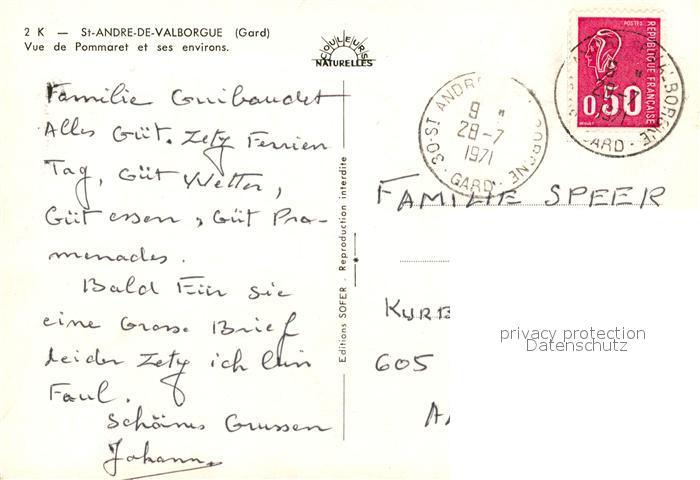 2 K — St-ANDRE-DE-VALBORGUE (Gard)
Vue de Pommaret et ses environs.
COULEURS
NATURELLES
POSTES
REPUBLIQUE FRANÇAISE
0,50
30-ST ANDR
BORGNE
9 H
28-7
1971
GARD
Familie Guibaudet
Alles Güt. Zety Ferrien
Tag, Güt Wetter,
Güt essen, Güt Pro-
menades.
Bald Für sie
eine Grosse Brief
leider Zety ich bin
Faul.
Schönes Grussen
Johann.
Editions SOFER. Reproduction interdite
FAMILIE SPEER
KURB
605
privacy protection
Datenschutz